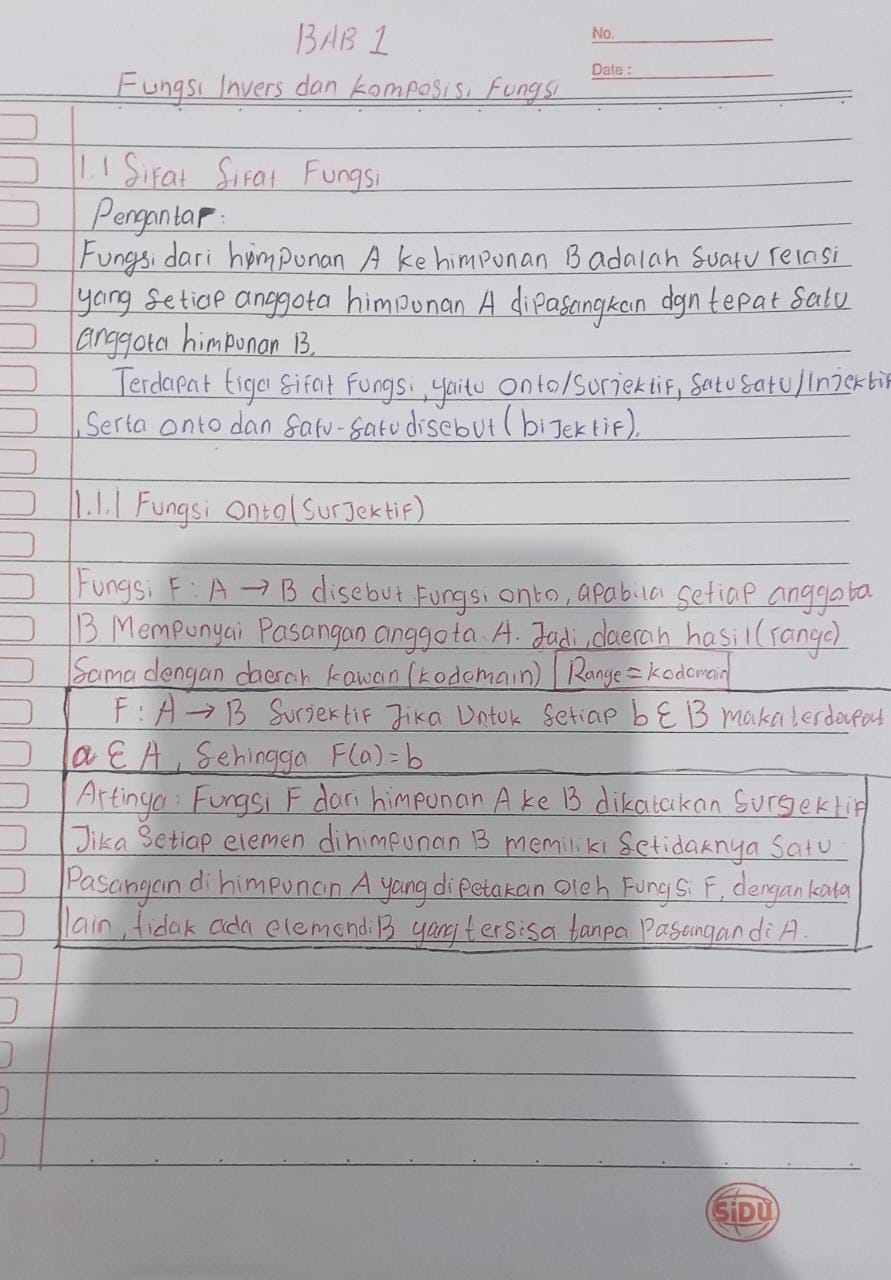 BAB 1
No.
Date :
Fungsi Invers dan Komposisi Fungsi
1.1 Sifat Sifat Fungsi
Pengantar :
Fungsi dari himpunan A ke himpunan B adalah suatu relasi
yang setiap anggota himpunan A dipasangkan dgn tepat satu
anggota himpunan B.
Terdapat tiga sifat Fungsi, yaitu onto/surjektif, satu satu/injektif
, Serta onto dan satu-satu disebut (bijektif).
1.1.1 Fungsi Onto (Surjektif)
Fungsi F : A → B disebut Fungsi onto, apabila setiap anggota
B Mempunyai Pasangan anggota A. Jadi, daerah hasil (range)
Sama dengan daerah kawan (kodomain) Range = kodomain
F : A → B Surjektif Jika Untuk Setiap b ∈ B maka terdapat
a ∈ A, Sehingga F(a) = b
Artinya : Fungsi F dari himpunan A ke B dikatakan Surjektif
Jika Setiap elemen dihimpunan B memiliki Setidaknya Satu
Pasangan dihimpunan A yang dipetakan oleh Fungsi F, dengan kata
lain, tidak ada elemen di B yang tersisa tanpa Pasangan di A.
SiDU